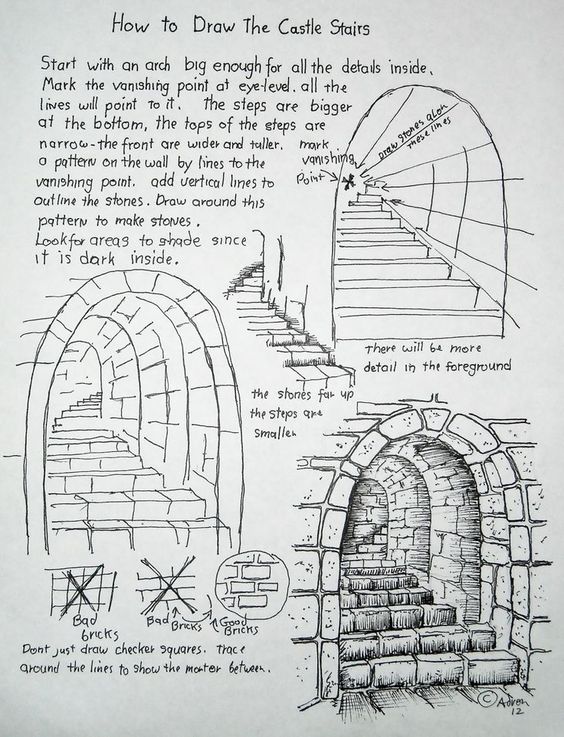 How to Draw The Castle Stairs
Start with an arch big enough for all the details inside.
Mark the vanishing point at eye-level. all the
lives will point to it. The steps are bigger
at the bottom, the tops of the steps are
narrow-the front are wider and taller. mark
a pattern on the wall by lines to the
vanishing point. add vertical lines to
outline the stones. Draw around this
pattern to make stones.
Look for areas to shade since
it is dark inside.
vanishing
Point
Draw stones along
these lines
There will be more
detail in the foreground
the stones far up
the steps are
smaller
Bad
bricks
Bad
Bricks
Good
Bricks
Dont just draw checker squares. trace
around the lines to show the morter between.
© Adron
12